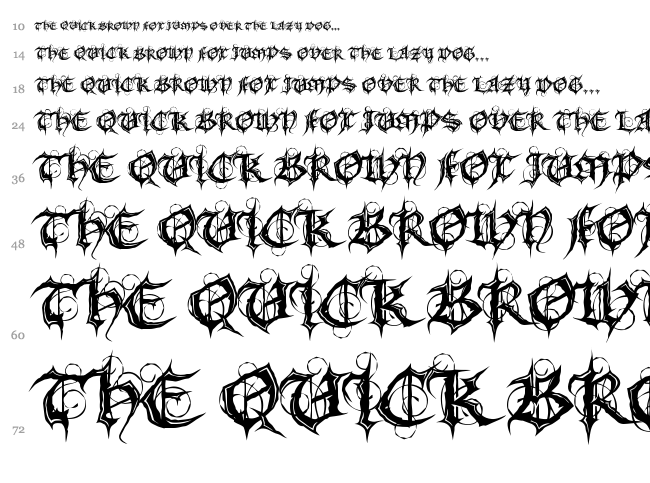 10 THE QUICK BROWN FOX JUMPS OVER THE LAZY DOG...
14 THE QUICK BROWN FOX JUMPS OVER THE LAZY DOG...
18 THE QUICK BROWN FOX JUMPS OVER THE LAZY DOG...
24 THE QUICK BROWN FOX JUMPS OVER THE LA
36 THE QUICK BROWN FOX JUMPS
48 THE QUICK BROWN FO
60 THE QUICK BROWN
72 THE QUICK BRO